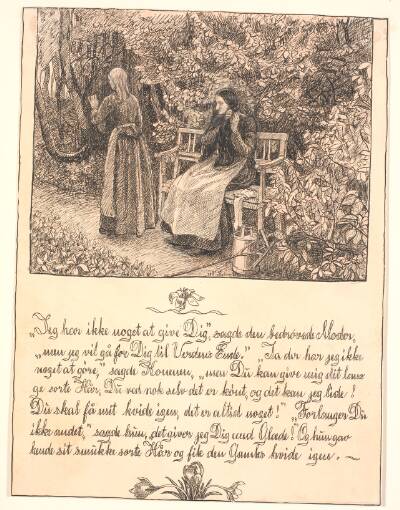 „Jeg har ikke noget at give Dig," sagde den bedrøvede Moder,
„men jeg vil gå for Dig til Verdens Ende." „Ja der har jeg ikke
noget at göre," sagde Konen, „men Du kan give mig dit lan-
ge sorte Hår, Du ved nok selv det er könt, og det kan jeg lide!
Du skal få mit hvide igen, det er altid noget!" „Forlanger Du
ikke andet," sagde hun, „det giver jeg Dig med Glæde! Og hun gav
hende sit smukke sorte Hår og fik den Gamles hvide igen. —